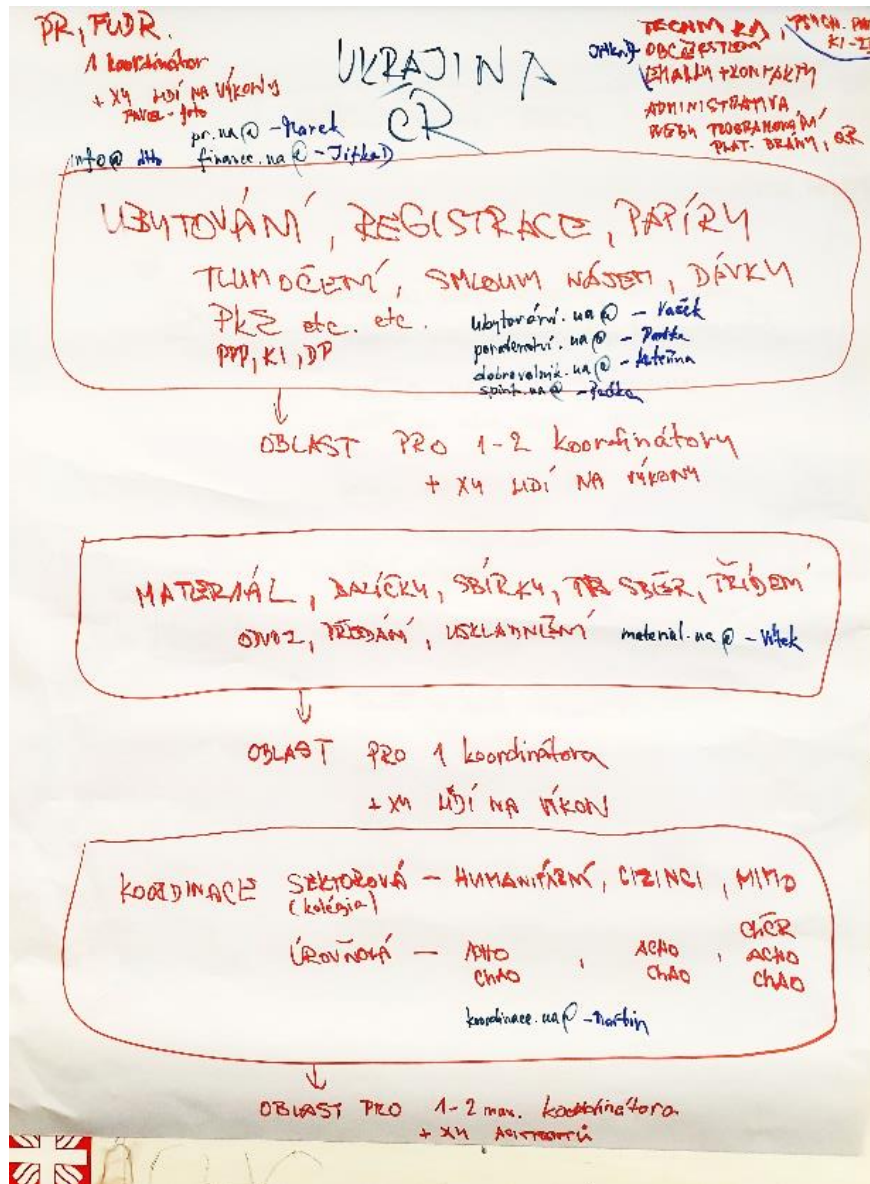 PR, FUDR.
1 koordinátor
+ XY LIDÍ NA VÝKONY
PAVEL - foto
pr.ua@ - Marek
info@ dtto finance.ua@ - Jitka D
UKRAJINA
ČR
TECHNIKA, PSYCH.
OBČERSTVENÍ
EMAILY + KONTAKTY
ADMINISTRATIVA
WEBY PROGRAMOVÁNÍ
PLAT. BRÁNY, QR
UBYTOVÁNÍ, REGISTRACE, PAPÍRY
TLUMOČENÍ, SMLOUVY NÁJEM, DÁVKY
etc. etc.
PVP, KI, DP
ubytování.ua@ - Vašek
poradenství.ua@ - Radka
dobrovolnik.ua@ - Kateřina
spirit.ua@ - Radka
OBLAST PRO 1-2 koordinátory
+ XY LIDÍ NA VÝKONY
MATERIÁL, BALÍČKY, SBÍRKY, SBĚR, TŘÍDENÍ
ODVOZ, PŘEDÁNÍ, USKLADNĚNÍ material.ua@ - Vítek
OBLAST PRO 1 koordinátora
+ XY LIDÍ NA VÝKON
KOORDINACE SEKTOROVÁ - HUMANITÁRNÍ, CIZINCI, MIMO
(kolégia)
ChČR
ÚROVŇOVÁ - ACHO, ACHO, ACHO
ChAO ChAO ChAO
koordinace.ua@ - Martin
OBLAST PRO 1-2 max. koordinátora
+ XY ASISTENTŮ